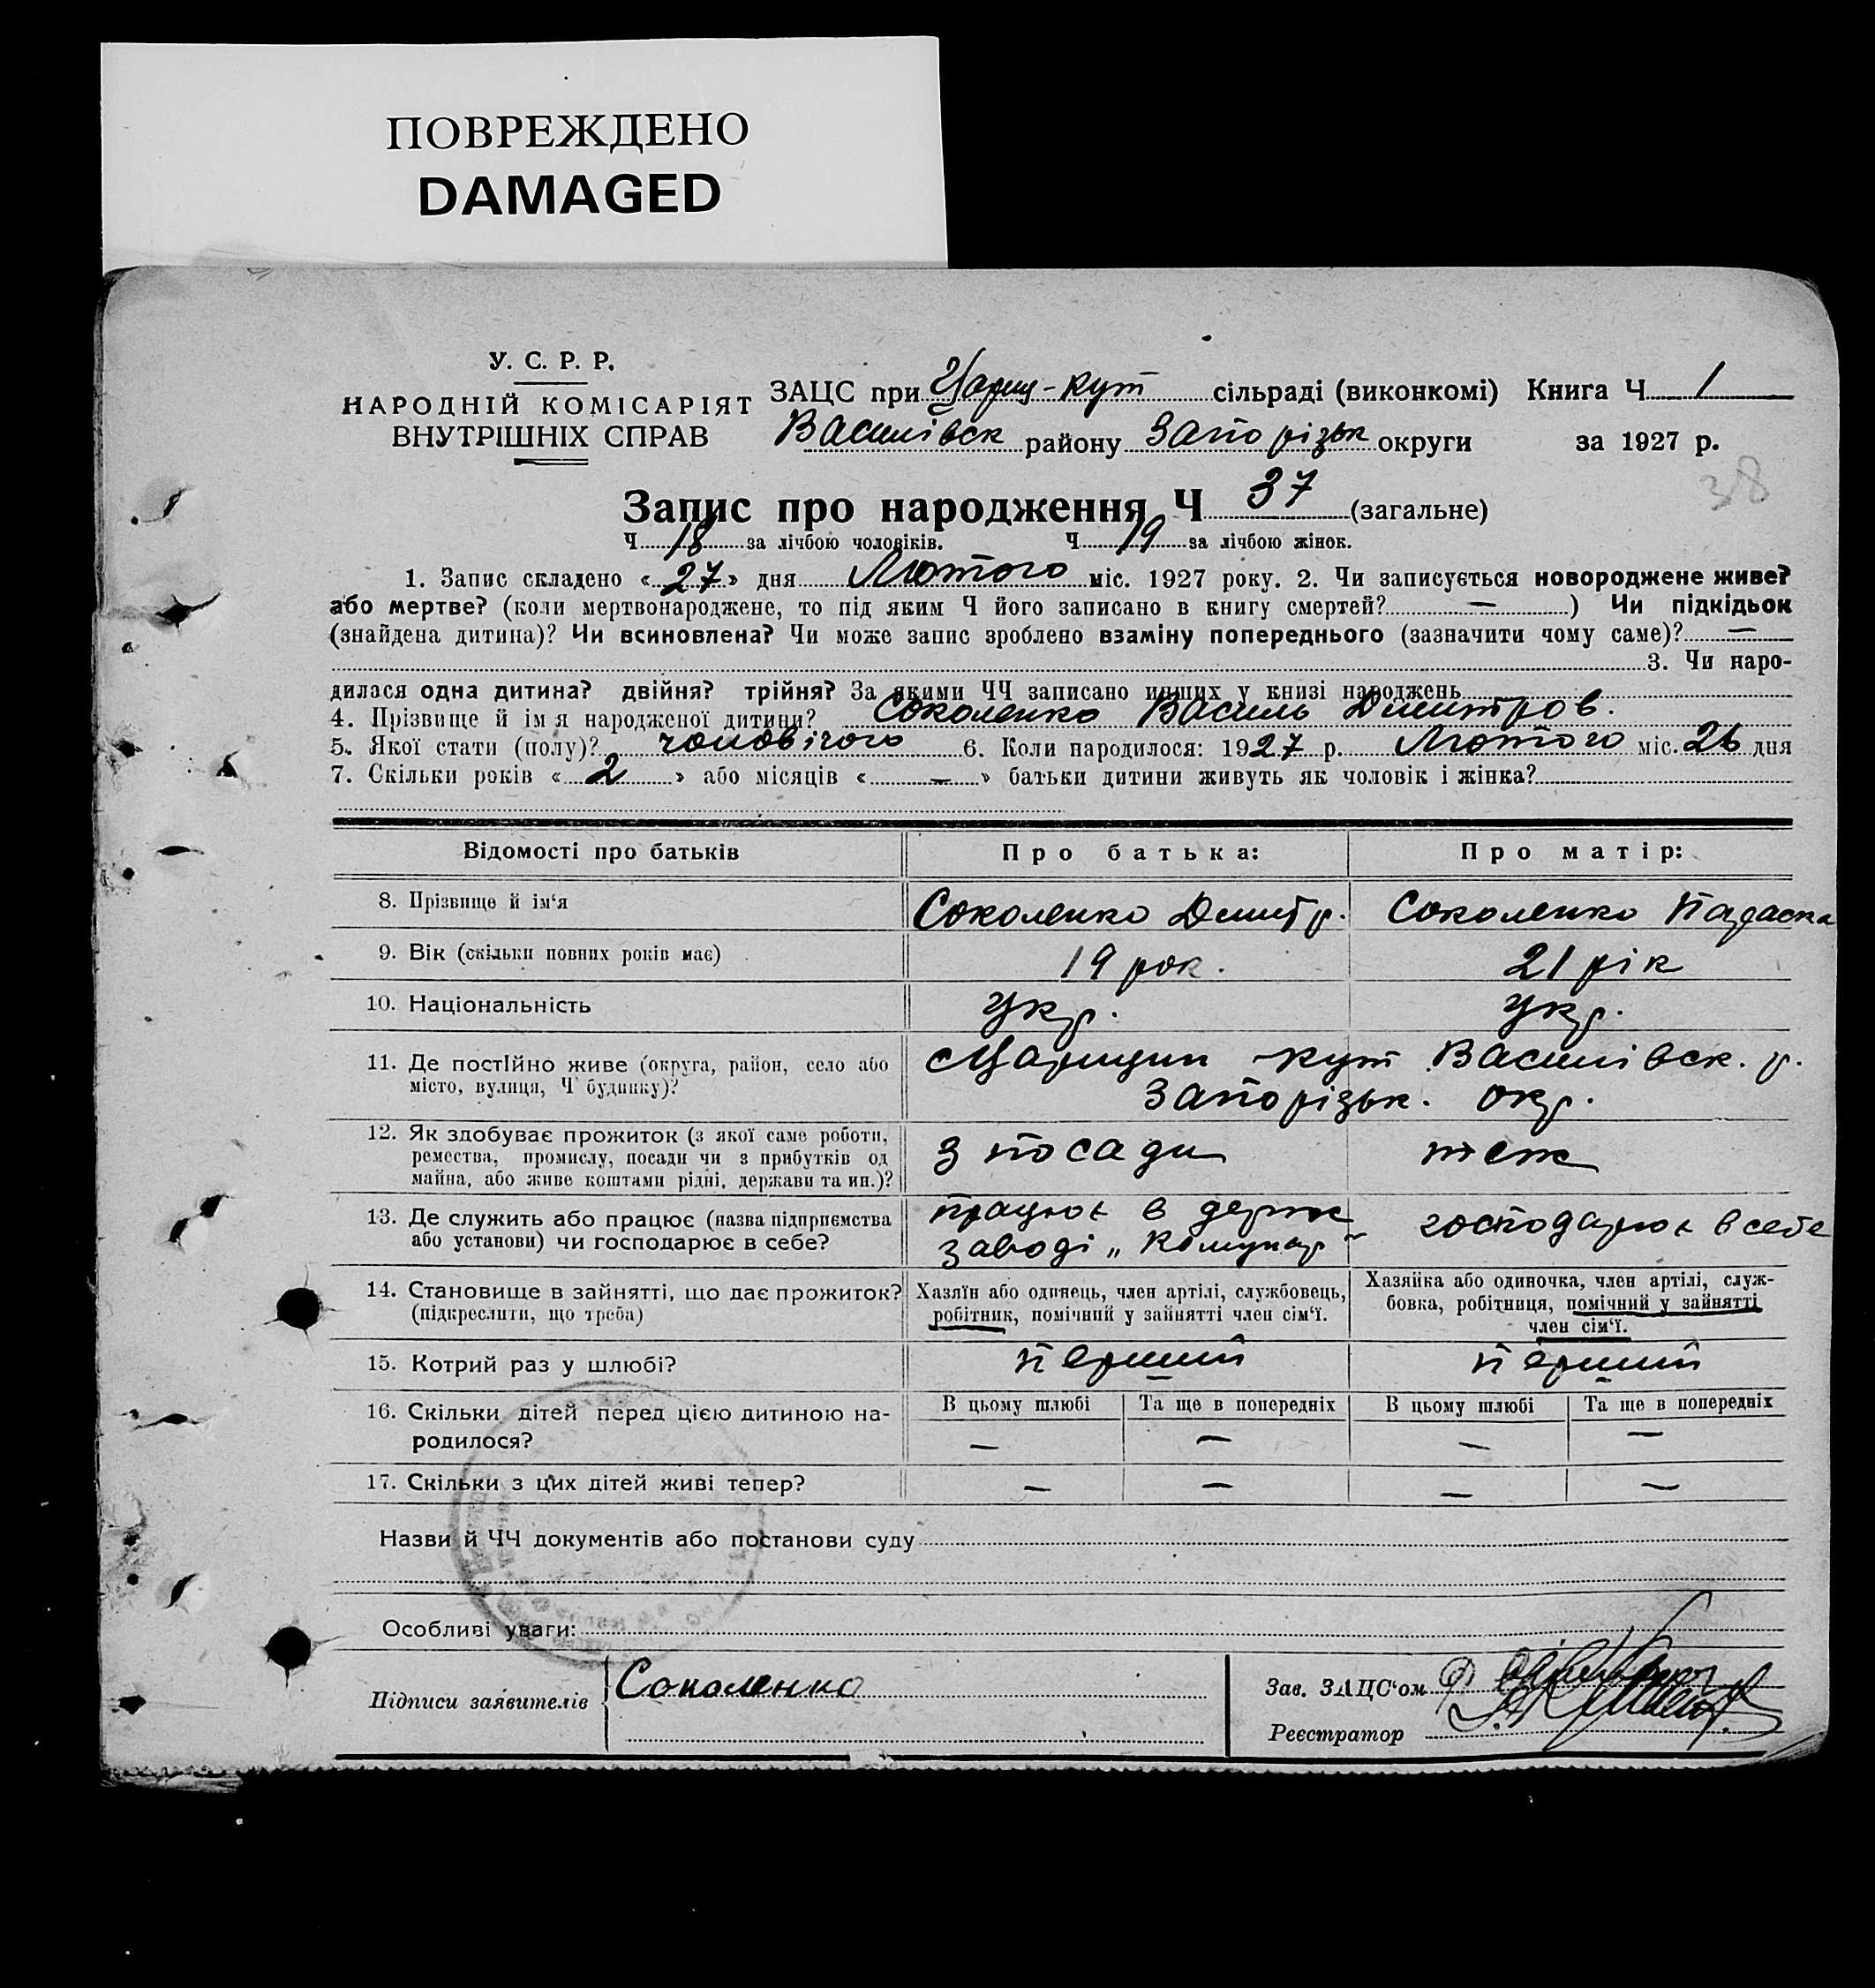 ПОВРЕЖДЕНО
DAMAGED
У. С. Р. Р.
НАРОДНІЙ КОМІСАРІЯТ
ВНУТРІШНІХ СПРАВ
ЗАЦС при Цариц-Кут сільраді (виконкомі) Книга Ч 1
Василівск району Запорізьк округи за 1927 р.
38
Запис про народження Ч 37 (загальне)
Ч 18 за лічбою чоловіків. Ч 19 за лічбою жінок.
1. Запис складено «27» дня Лютого міс. 1927 року. 2. Чи записується новороджене живе?
або мертве? (коли мертвонароджене, то під яким Ч його записано в книгу смертей? — ) Чи підкідьок
(знайдена дитина)? Чи всиновлена? Чи може запис зроблено взаміну попереднього (зазначити чому саме)? —
3. Чи наро-
дилася одна дитина? двійня? трійня? За якими ЧЧ записано инших у книзі народжень
4. Прізвище й ім я народженої дитини? Соколенко Василь Дмитров.
5. Якої стати (полу)? чоловічого 6. Коли народилося: 1927 р. Лютого міс. 26 дня
7. Скільки років «2» або місяців « — » батьки дитини живуть як чоловік і жінка?
Відомості про батьків Про батька: Про матір:
8. Прізвище й ім‘я Соколенко Дмитр. Соколенко
9. Вік (скільки повних років має) 19 рок. 21 рік
10. Національність Укр. Укр.
11. Де постійно живе (округа, район, село або
місто, вулиця, Ч будинку)?
с Царицин Кут Василівск. р.
Запорізьк. окр.
12. Як здобуває прожиток (з якої саме роботи,
ремества, промислу, посади чи з прибутків од
майна, або живе коштами рідні, держави та ин.)?
з посади теж
13. Де служить або працює (назва підприємства
або установи) чи господарює в себе?
працює в держ
заводі „Комунар"
господарює в себе
14. Становище в зайнятті, що дає прожиток?
(підкреслити, що треба)
Хазяїн або одинець, член артілі, службовець,
робітник, помічний у зайнятті член сім‘ї.
Хазяйка або одиночка, член артілі, служ-
бовка, робітниця, помічний у зайнятті
член сім‘ї.
15. Котрий раз у шлюбі? перший перший
16. Скільки дітей перед цією дитиною на-
родилося?
В цьому шлюбі Та ще в попередніх В цьому шлюбі Та ще в попередніх
— — — —
17. Скільки з цих дітей живі тепер? — — — —
Назви й ЧЧ документів або постанови суду
Особливі уваги:
Підписи заявителів Соколенко
Зав. ЗАЦС‘ом
Реєстратор